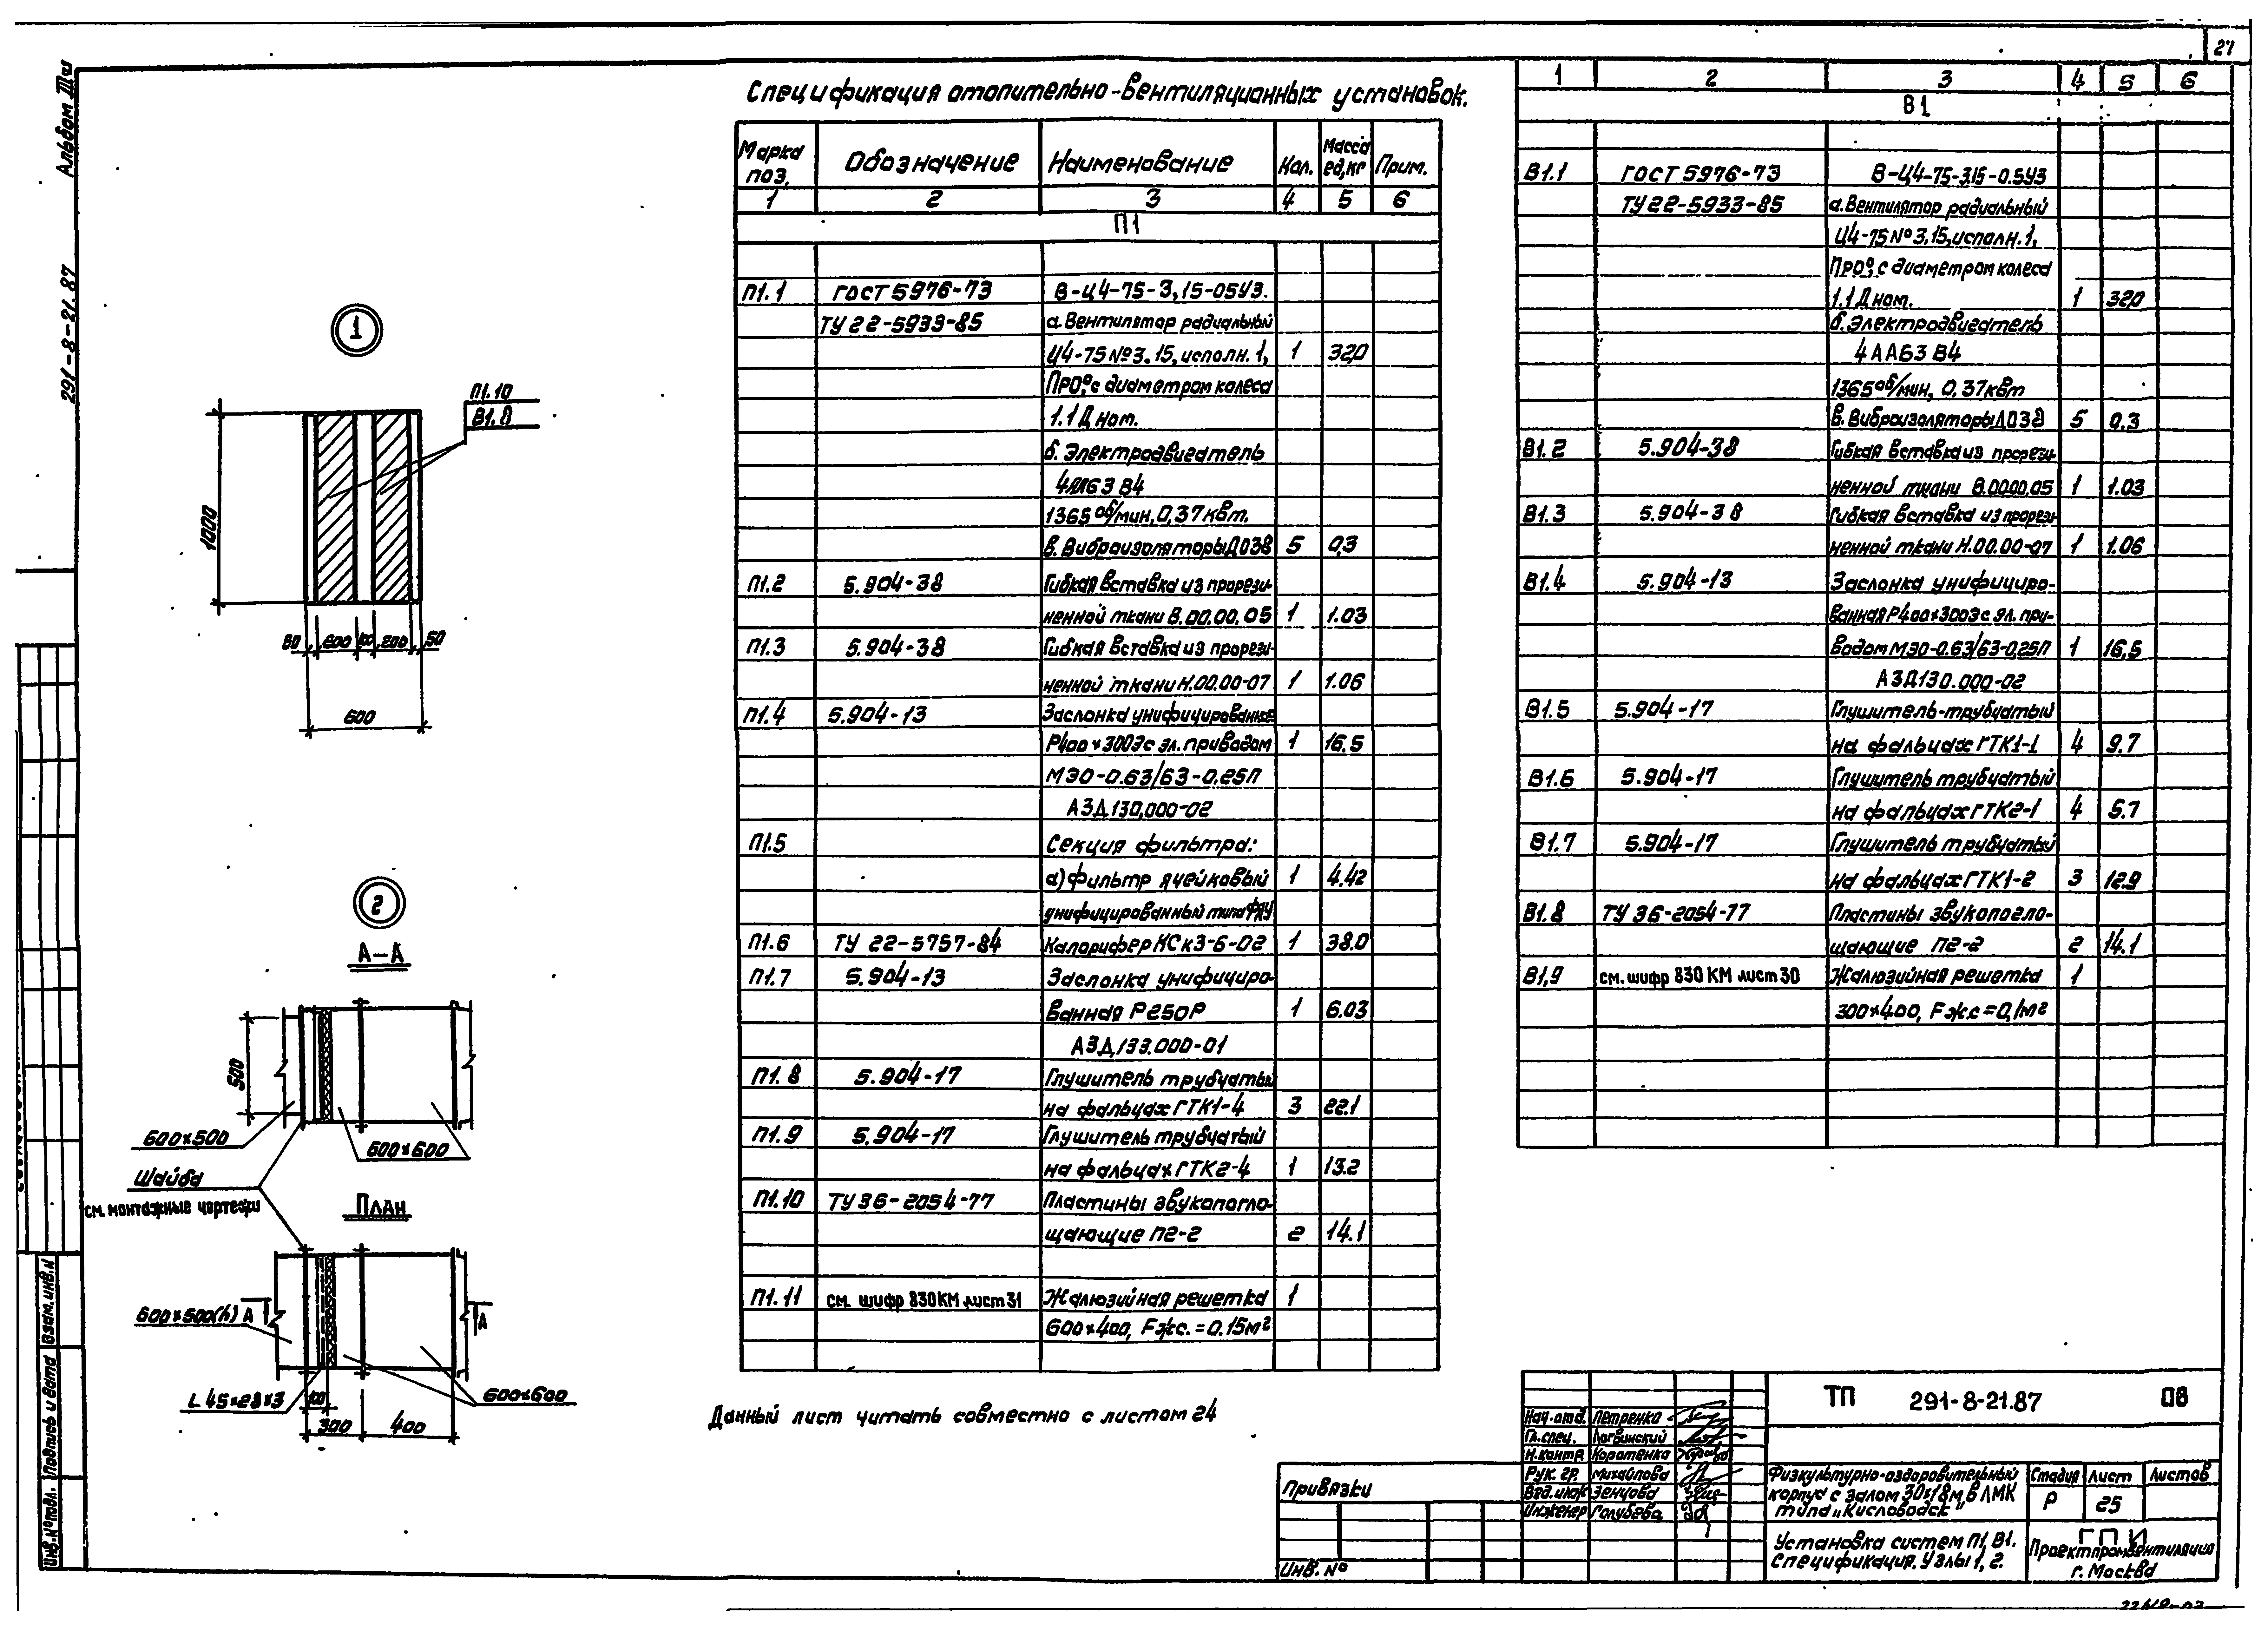 27
Альбом III
291-8-21.87
1
П1.10
В1.8
1000
50 200 100 200 50
600
2
А-А
500
600×500
600×600
Шайба
см. монтажные чертежи
План
600×500(h) А
А
L 45×28×3
100
600×600
300 400
Спецификация отопительно-вентиляционных установок.
Марка поз. Обозначение Наименование Кол. Масса ед,кг Прим.
1 2 3 4 5 6
П1
П1.1 ГОСТ 5976-73 В-Ц4-75-3,15-05У3.
ТУ 22-5933-85 а. Вентилятор радиальный
Ц4-75 №3.15, исполн. 1, 1 32,0
Пр0°, с диаметром колеса
1.1 Д ном.
б. Электродвигатель
4АА63 В4
1365 об/мин, 0,37 квт.
в. Виброизоляторы ДО38 5 0,3
П1.2 5.904-38 Гибкая вставка из прорези-
ненной ткани В.00.00.05 1 1.03
П1.3 5.904-38 Гибкая вставка из прорези-
ненной ткани Н.00.00-07 1 1.06
П1.4 5.904-13 Заслонка унифицированная
Р400×300Э с эл. приводом 1 16.5
МЭО-0.63/63-0.25П
АЗД130.000-02
П1.5 Секция фильтра:
а) фильтр ячейковый 1 4.42
унифицированный типа ФяУ
П1.6 ТУ 22-5757-84 Калорифер КСк3-6-02 1 38.0
П1.7 5.904-13 Заслонка унифициро-
ванная Р250Р 1 6.03
АЗД133.000-01
П1.8 5.904-17 Глушитель трубчатый
на фальцах ГТК1-4 3 22.1
П1.9 5.904-17 Глушитель трубчатый
на фальцах ГТК2-4 1 13.2
П1.10 ТУ 36-2054-77 Пластины звукопогло-
щающие П2-2 2 14.1
П1.11 см. шифр 830КМ лист 31 Жалюзийная решетка 1
600×400, Fж.с. = 0.15м²
Данный лист читать совместно с листом 24
1 2 3 4 5 6
В1
В1.1 ГОСТ 5976-73 В-Ц4-75-3.15-0.5У3
ТУ 22-5933-85 а. Вентилятор радиальный
Ц4-75 №3,15, исполн. 1,
Пр0°, с диаметром колеса
1.1 Д ном. 1 32,0
б. Электродвигатель
4АА63 В4
1365 об/мин, 0,37 квт
в. Виброизоляторы ДО38 5 0,3
В1.2 5.904-38 Гибкая вставка из прорези-
ненной ткани В.00.00.05 1 1.03
В1.3 5.904-38 Гибкая вставка из прорези-
ненной ткани Н.00.00-07 1 1.06
В1.4 5.904-13 Заслонка унифициро-
ванная Р400×300Э с эл. при-
водом МЭО-0.63/63-0,25П 1 16,5
АЗД130.000-02
В1.5 5.904-17 Глушитель-трубчатый
на фальцах ГТК1-1 4 9.7
В1.6 5.904-17 Глушитель трубчатый
на фальцах ГТК2-1 4 5.7
В1.7 5.904-17 Глушитель трубчатый
на фальцах ГТК1-2 3 12.9
В1.8 ТУ 36-2054-77 Пластины звукопогло-
щающие П2-2 2 14.1
В1,9 см. шифр 830 КМ лист 30 Жалюзийная решетка 1
300×400, Fж.с = 0,1м²
ТП 291-8-21.87 ОВ
Нач. отд. Петренко
Гл. спец. Логвинский
Н. контр Коротенко
Рук. гр. Михайлова
Вед. инж Зенцова
Инженер Голубева
Физкультурно-оздоровительный
корпус с залом 30×18м, в ЛМК
типа „Кисловодск"
Стадия Лист Листов
Р 25
Установка систем П1, В1.
Спецификация. Узлы 1, 2.
ГПИ
Проектпромвентиляция
г. Москва
Привязки
Инв. №
Взам. инв. №
Подпись и дата
Инв. № подл.